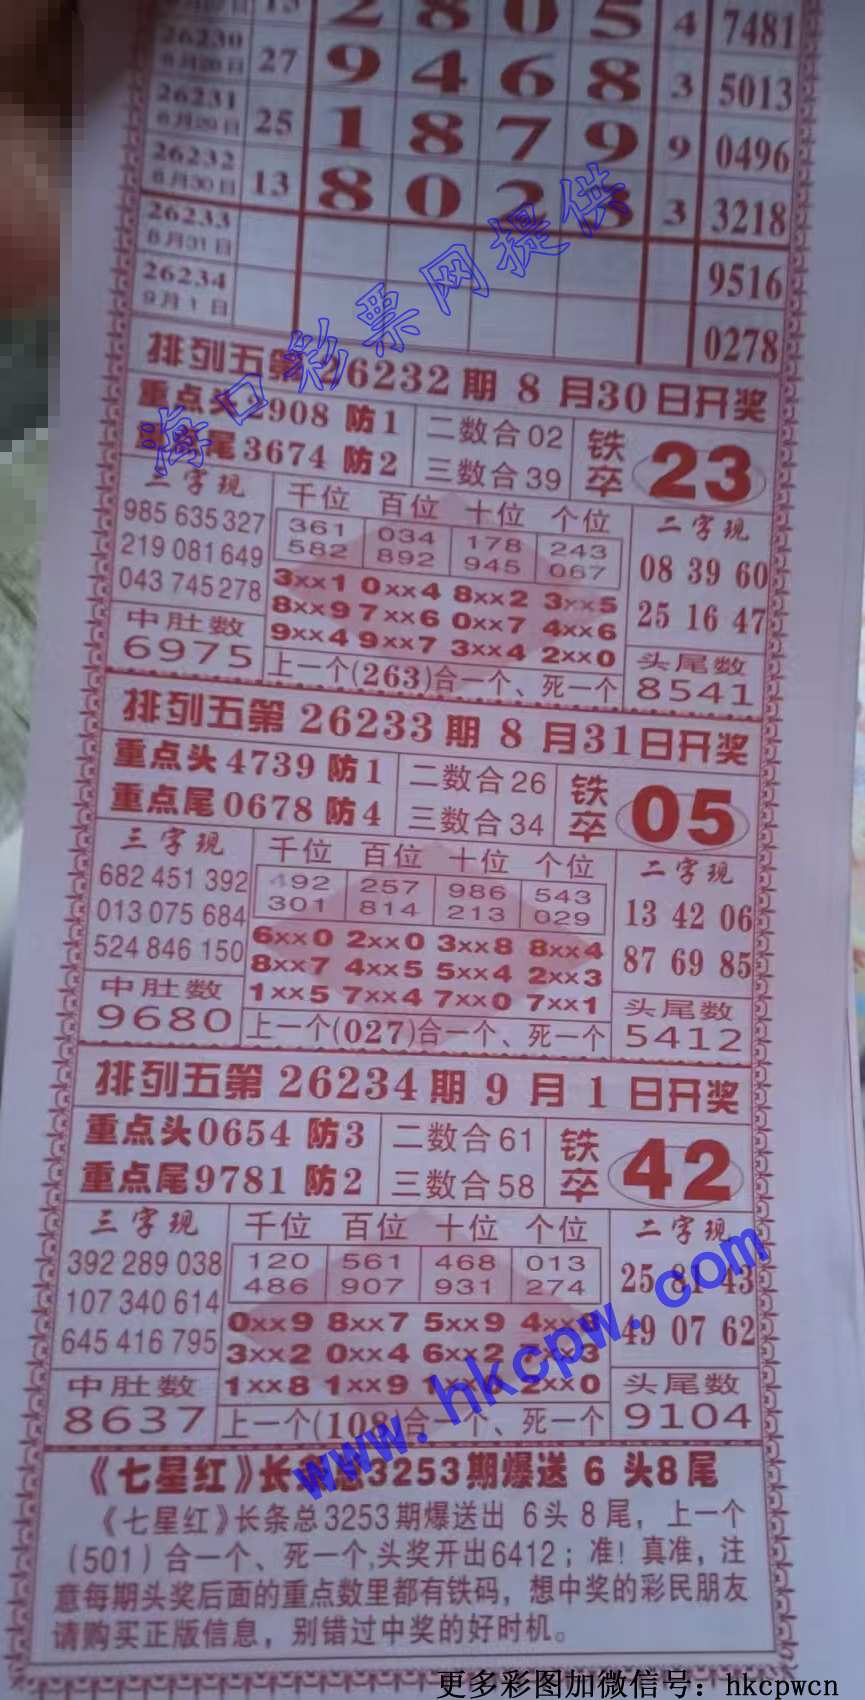 2 8 0 5 4 7481
26230
8月28日 27 9 4 6 8 3 5013
26231
8月29日 25 1 8 7 9 9 0496
26232
8月30日 13 8 0 2 3 3 3218
26233
8月31日 9516
26234
9月1日 0278
海口彩票网提供
排列五第26232期 8月30日开奖
重点头2908 防1 二数合02 铁卒 23
尾3674 防2 三数合39
三字现 千位 百位 十位 个位 二字现
985 635 327 361 034 178 243 08 39 60
219 081 649 582 892 945 067 25 16 47
043 745 278 3xx1 0xx4 8xx2 3xx5
8xx9 7xx6 0xx7 4xx6
9xx4 9xx7 3xx4 2xx0
中肚数 头尾数
6975 上一个(263)合一个、死一个 8541
排列五第26233期 8月31日开奖
重点头4739 防1 二数合26 铁卒 05
重点尾0678 防4 三数合34
三字现 千位 百位 十位 个位 二字现
682 451 392 492 257 986 543 13 42 06
013 075 684 301 814 213 029 87 69 85
524 846 150 6xx0 2xx0 3xx8 8xx4
8xx7 4xx5 5xx4 2xx3
1xx5 7xx4 7xx0 7xx1
中肚数 头尾数
9680 上一个(027)合一个、死一个 5412
排列五第26234期 9月1日开奖
重点头0654 防3 二数合61 铁卒 42
重点尾9781 防2 三数合58
三字现 千位 百位 十位 个位 二字现
392 289 038 120 561 468 013 25 81 43
107 340 614 486 907 931 274 49 07 62
645 416 795 0xx9 8xx7 5xx9
3xx2 0xx4 6xx2
1xx8 1xx9 2xx0
中肚数 头尾数
8637 上一个(108)合一个、死一个 9104
www.hkcpw.com
《七星红》长条总3253期爆送 6 头8尾
《七星红》长条总3253期爆送出 6头8尾，上一个
(501)合一个、死一个,头奖开出6412；准！真准，注
意每期头奖后面的重点数里都有铁码，想中奖的彩民朋友
请购买正版信息，别错过中奖的好时机。
更多彩图加微信号：hkcpwcn